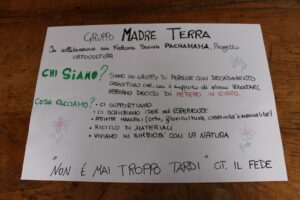 GRUPPO MADRE TERRA
In collaborazione con Fattoria Sociale PACHAMAMA, Progetto
ORTOCULTURA
CHI SIAMO? SIAMO UN GRUPPO DI PERSONE CON DECADIMENTO
COGNITIVO CHE, con il supporto di alcuni VOLONTARI,
ABBIAMO DECISO DI METTERCI IN GIOCO.
COSA FACCIAMO? • CI SUPPORTIAMO
• CI SCAMBIAMO IDEE ed ESPERIENZE
• ATTIVITÀ MANUALI (orto, floricultura, creatività e manualità)
• RICICLO DI MATERIALI
• VIVIAMO IN SIMBIOSI CON LA NATURA
"NON È MAI TROPPO TARDI" CIT. IL FEDE